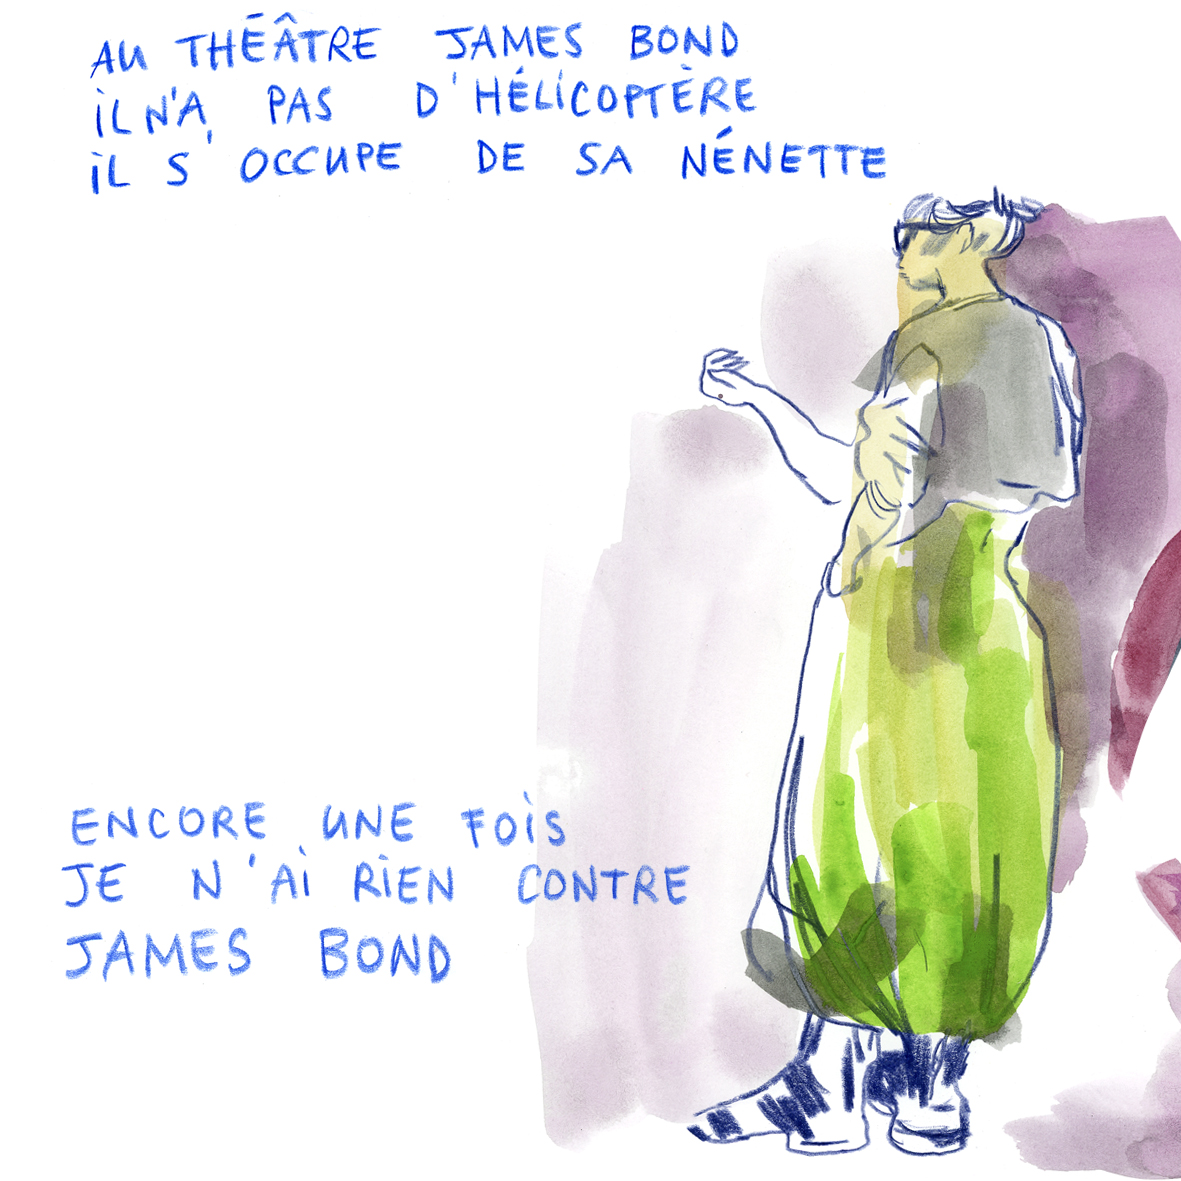 AU THÉÂTRE JAMES BOND
iL N'A PAS D'HÉLiCOPTÈRE
iL S'OCCUPE DE SA NÉNETTE
ENCORE UNE FOiS
JE N'Ai RiEN CONTRE
JAMES BOND